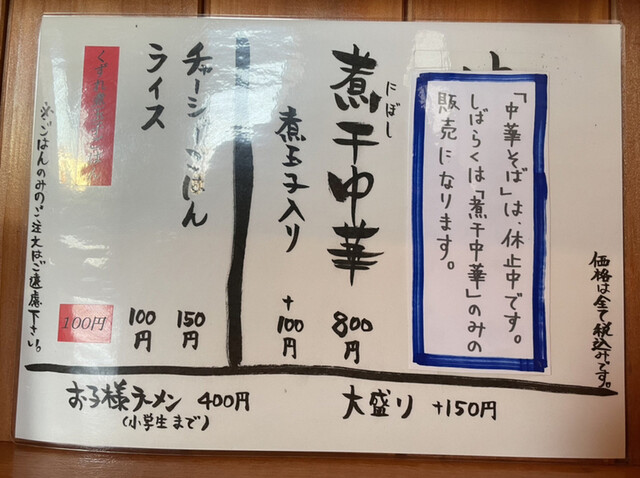 「中華そば」は、休止中です。
しばらくは「煮干中華」のみの
販売になります。
価格は全て税込みです。
にぼし
煮干中華 800円
煮玉子入り +100円
チャーシューごはん 150円
ライス 100円
100円
※ごはんのみのご注文はご遠慮下さい。
大盛り +150円
お子様ラーメン 400円
(小学生まで)